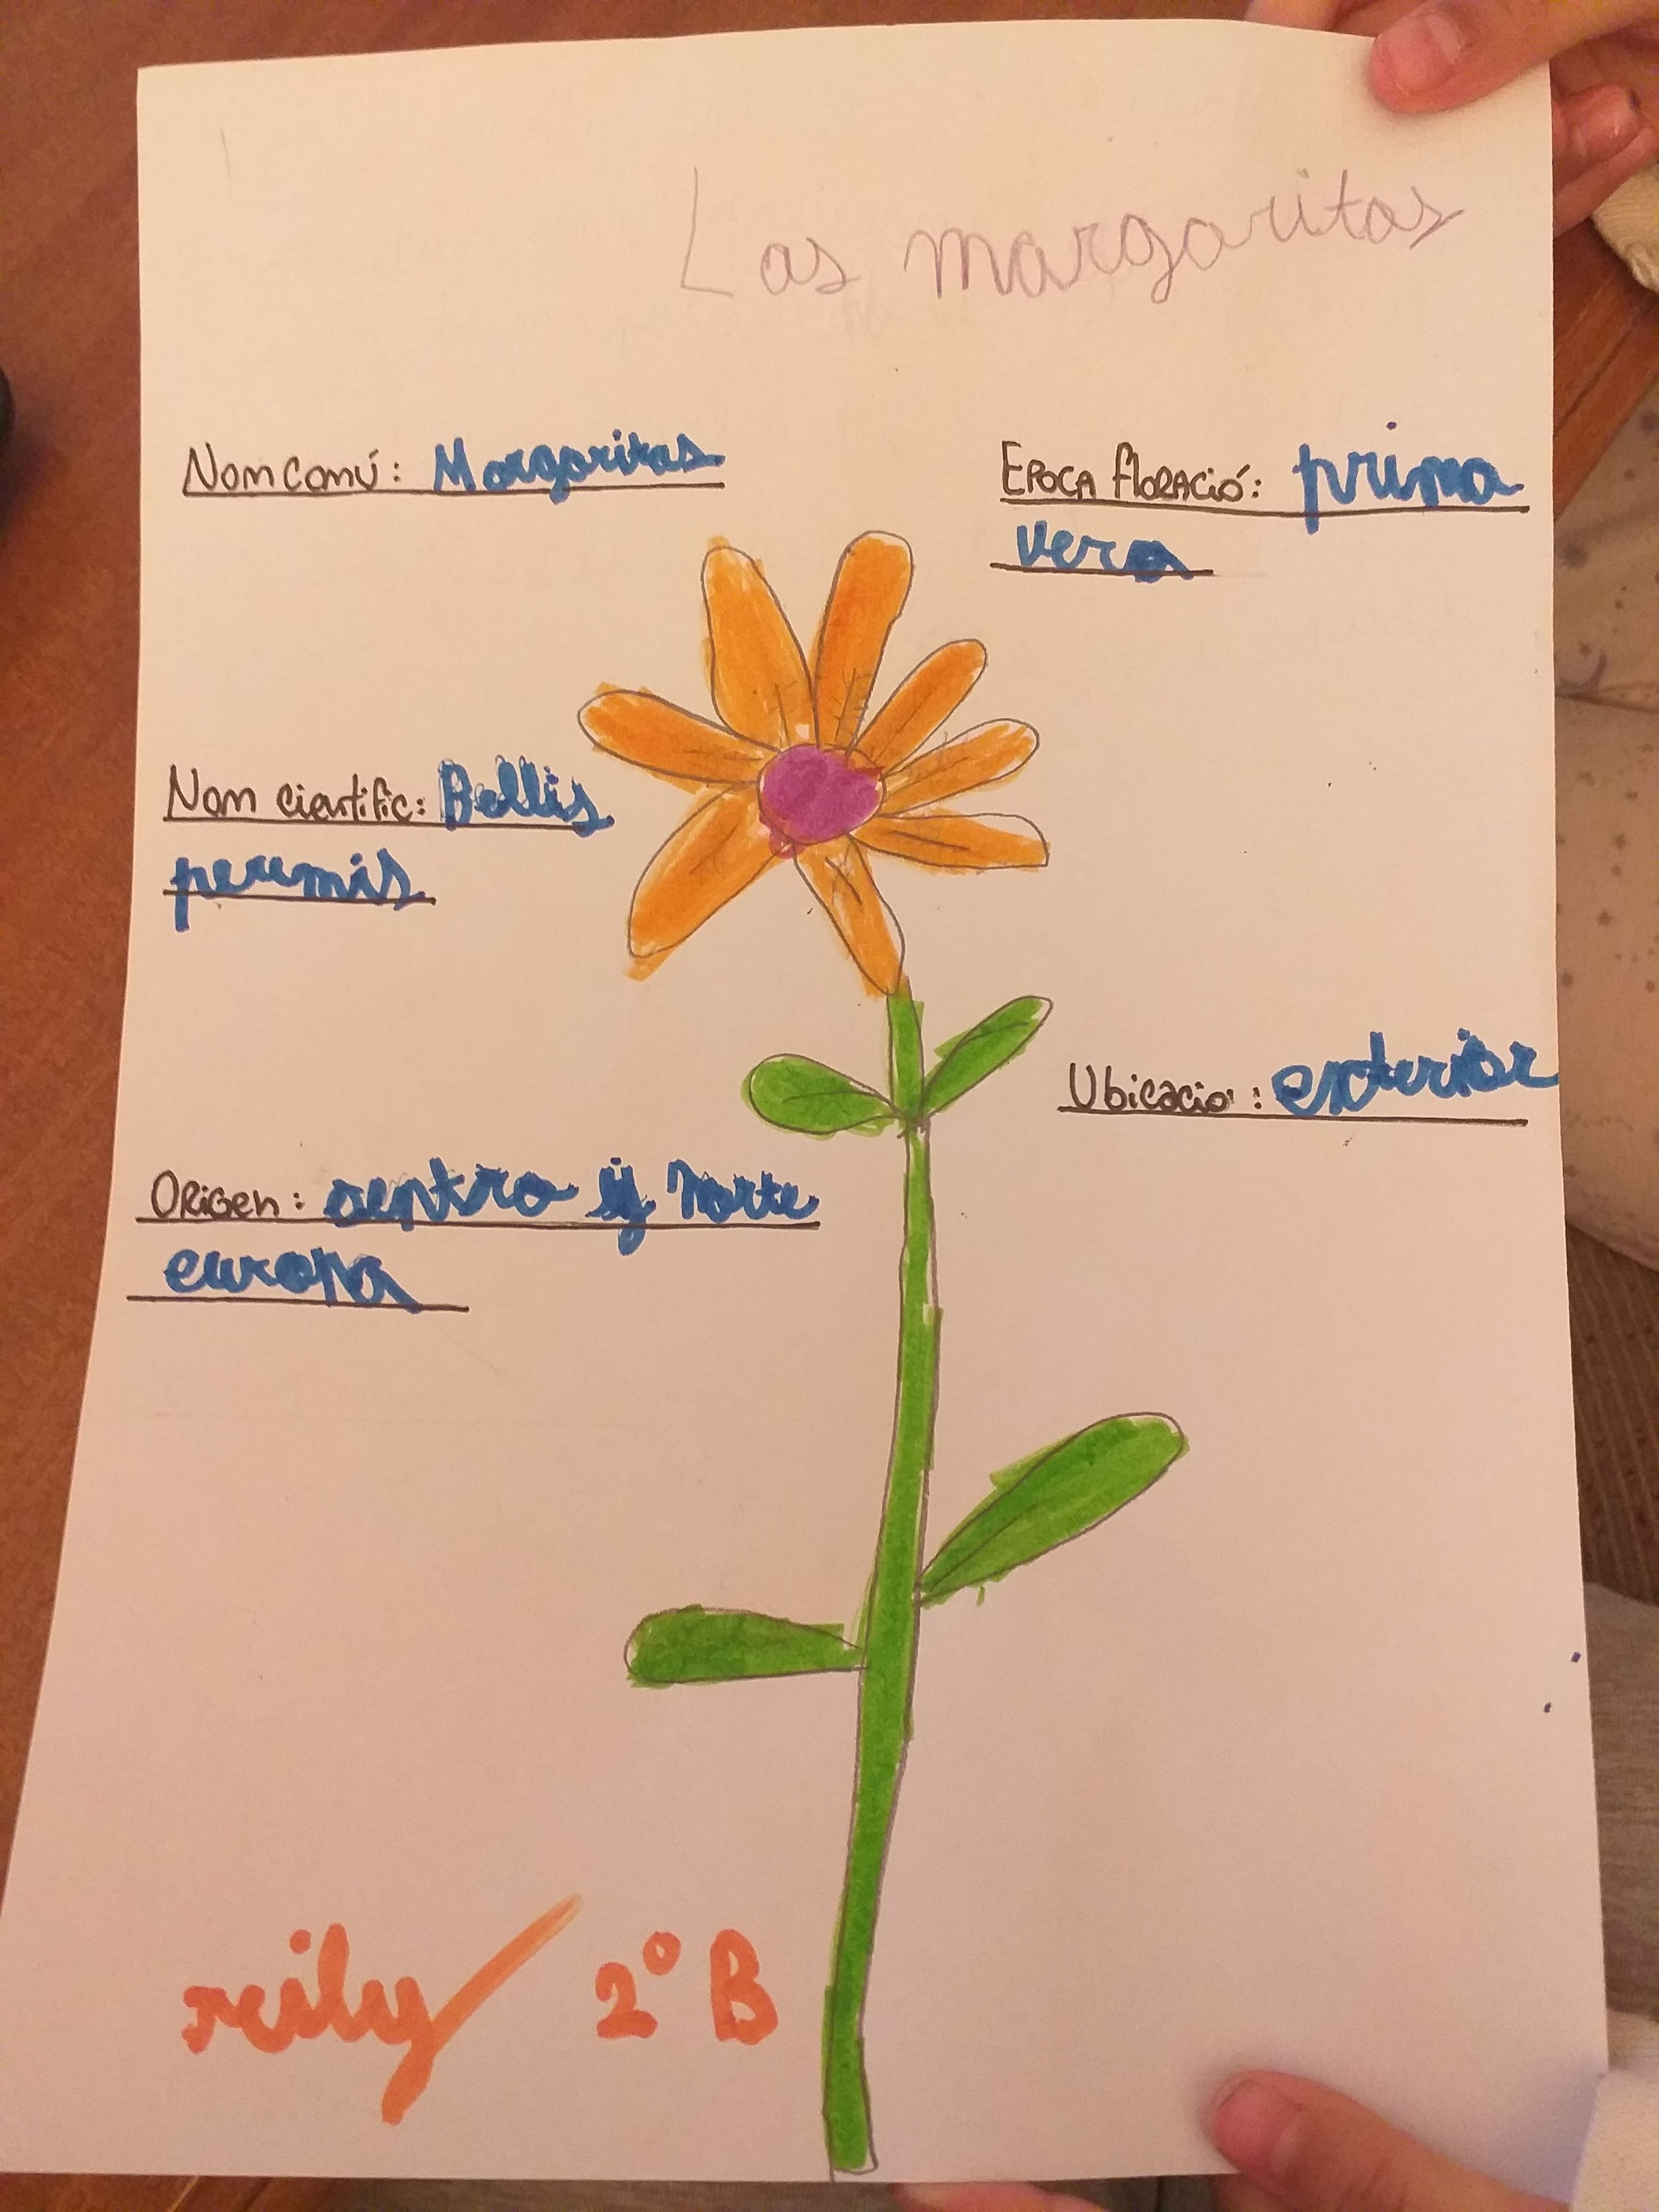 Las margaritas
Nom comú: Margaritas
Epoca floració: prima
vera
Nom cientific: Bellis
perennis
Ubicacio: exterior
Origen: sentro y Norte
europa
reily 2º B